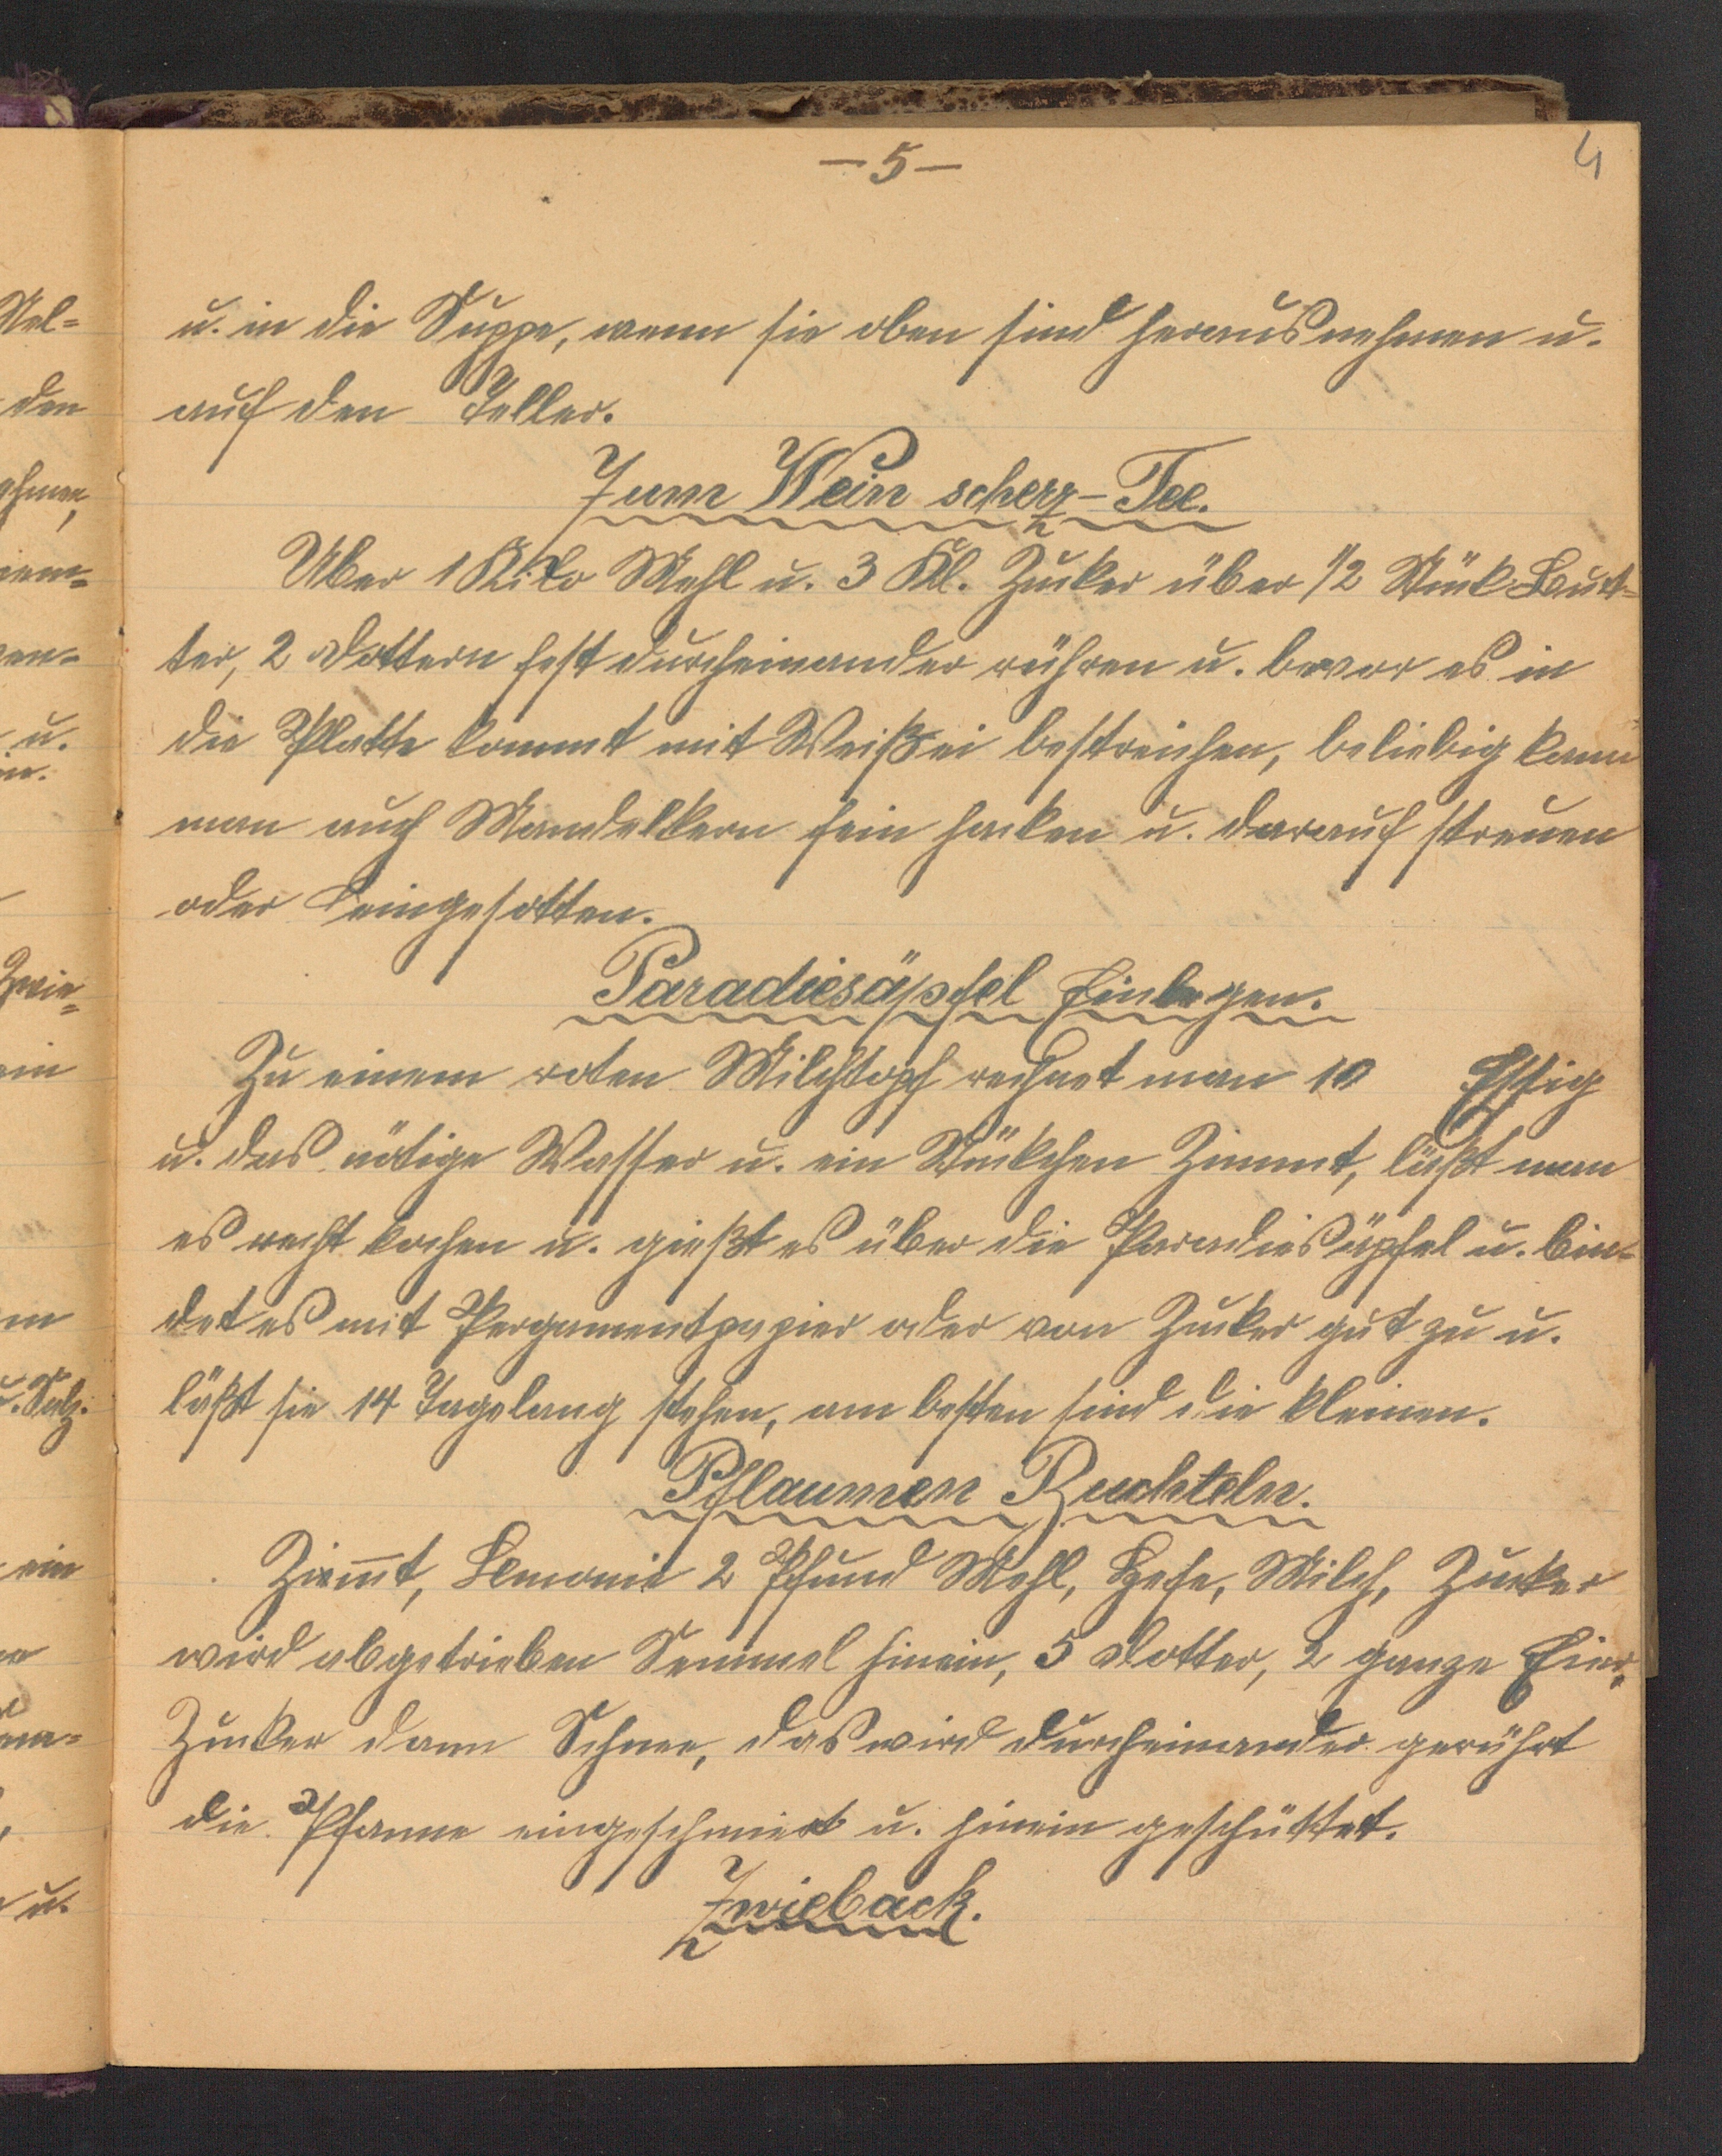 – 5 –
4
u. in die Suppe, wenn sie oben sind herausnehmen u.
auf den Teller.
Zum Wein scherz-Tee.
Über 1 Kilo Mehl u. 3 Kl. Zuker über 1/2 Stük But=
ter, 2 Dottern fest durcheinander rühren u. bevor es in
die Platte kommt mit Weißei bestreichen, beliebig kann
man auch Mandelkern fein haken u. darauf streuen
oder eingesotten.
Paradiesäpfel Einlegen.
Zu einem roten Milchtopf rechnet man 10 Essig
u. das nötige Wasser u. ein Stükchen Zimmt, läßt man
es recht kochen u. gießt es über die Paradiesäpfel u. bin=
det es mit Pergamentpapier oder von Zuker gut zu u.
läßt sie 14 Tagelang stehen, am besten sind die kleinen.
Pflaumen Buchteln.
Zim̅t, Lemonie 2 Pfund Mehl, Hefe, Milch, Zucker
wird abgetrieben Semmel hinein, 5 Dotter, 2 ganze Eier,
Zucker dann Schnee, das wird durcheinander gerührt
die Pfanne eingeschmiert u. hinein geschüttet.
Zwieback.
Mel=
den
u.
in.
Zwie=
ein
u. Salz.
ein
u.